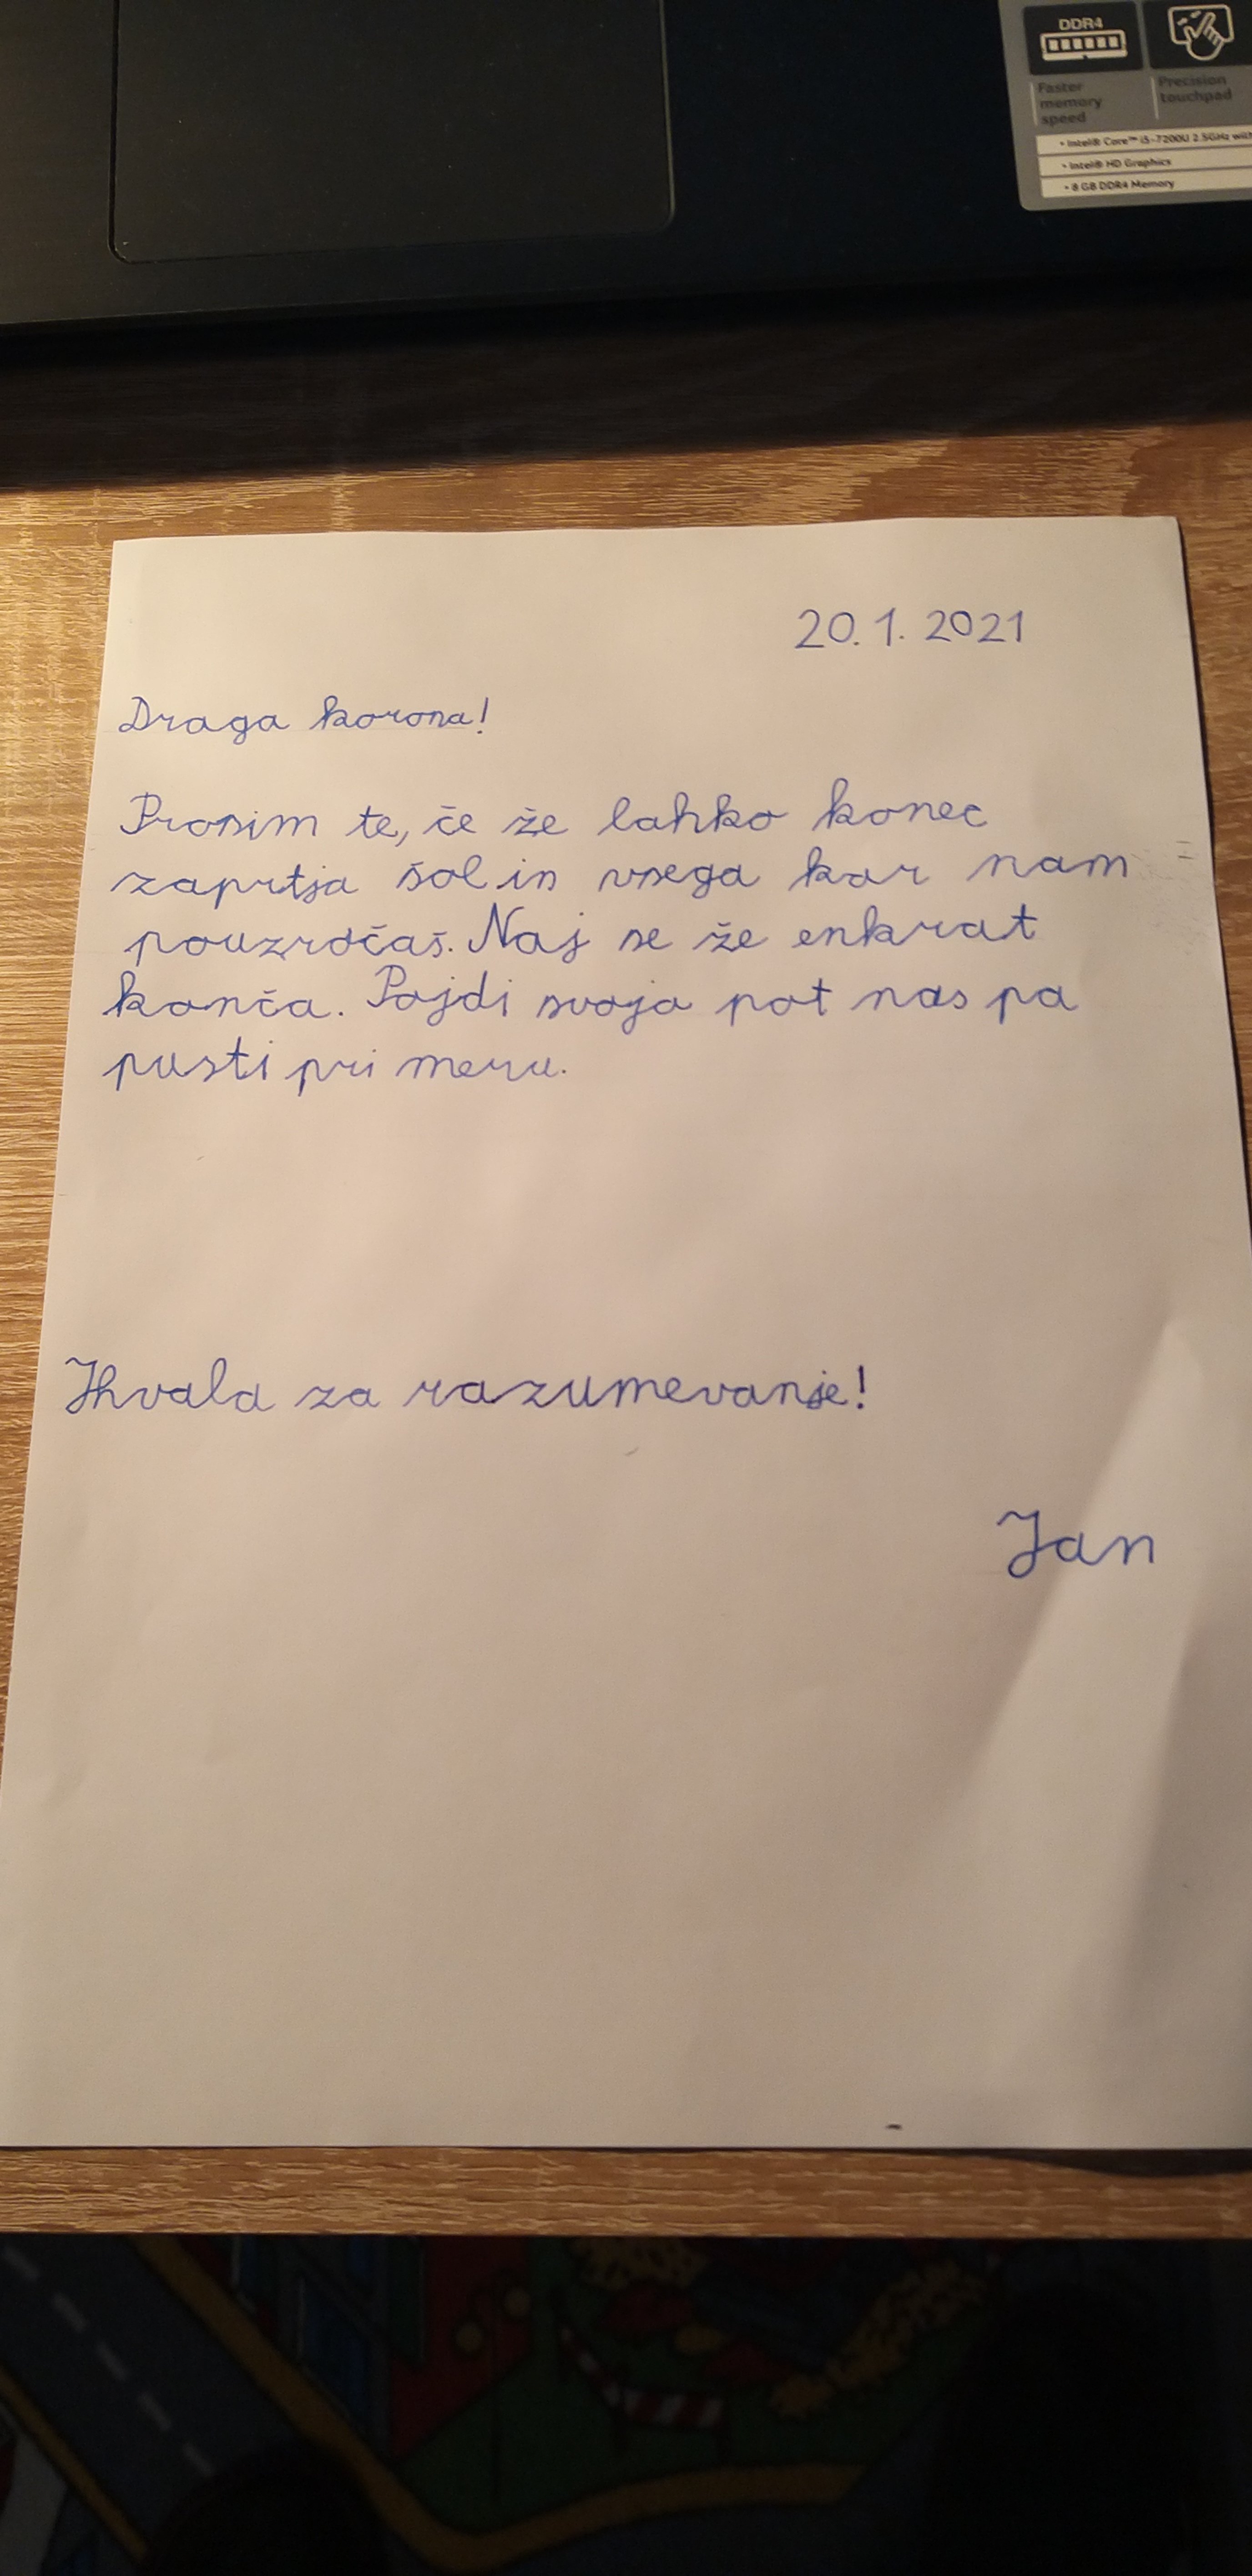 DDR4
Faster
memory
speed
Precision
touchpad
• Intel® Core™ i5-7200U 2.5GHz with
• Intel® HD Graphics
• 8 GB DDR4 Memory
20. 1. 2021
Draga korona!
Prosim te, če že lahko konec
zaprtja šol in vsega kar nam
pouzročaš. Naj se že enkrat
konča. Pojdi svoja pot nas pa
pusti pri meru.
Hvala za razumevanje!
Jan